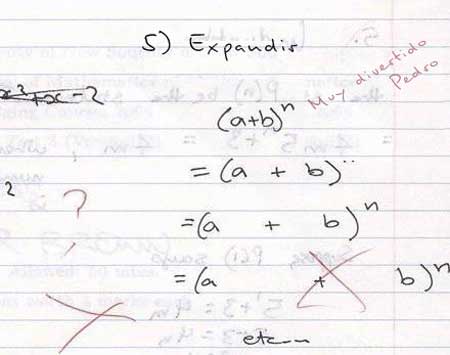 5) Expandir
Muy divertido
Pedro
x²+x-2
(a+b)ⁿ
= (a + b)ⁿ
2
?
= (a + b)ⁿ
= (a + b)ⁿ
etc...